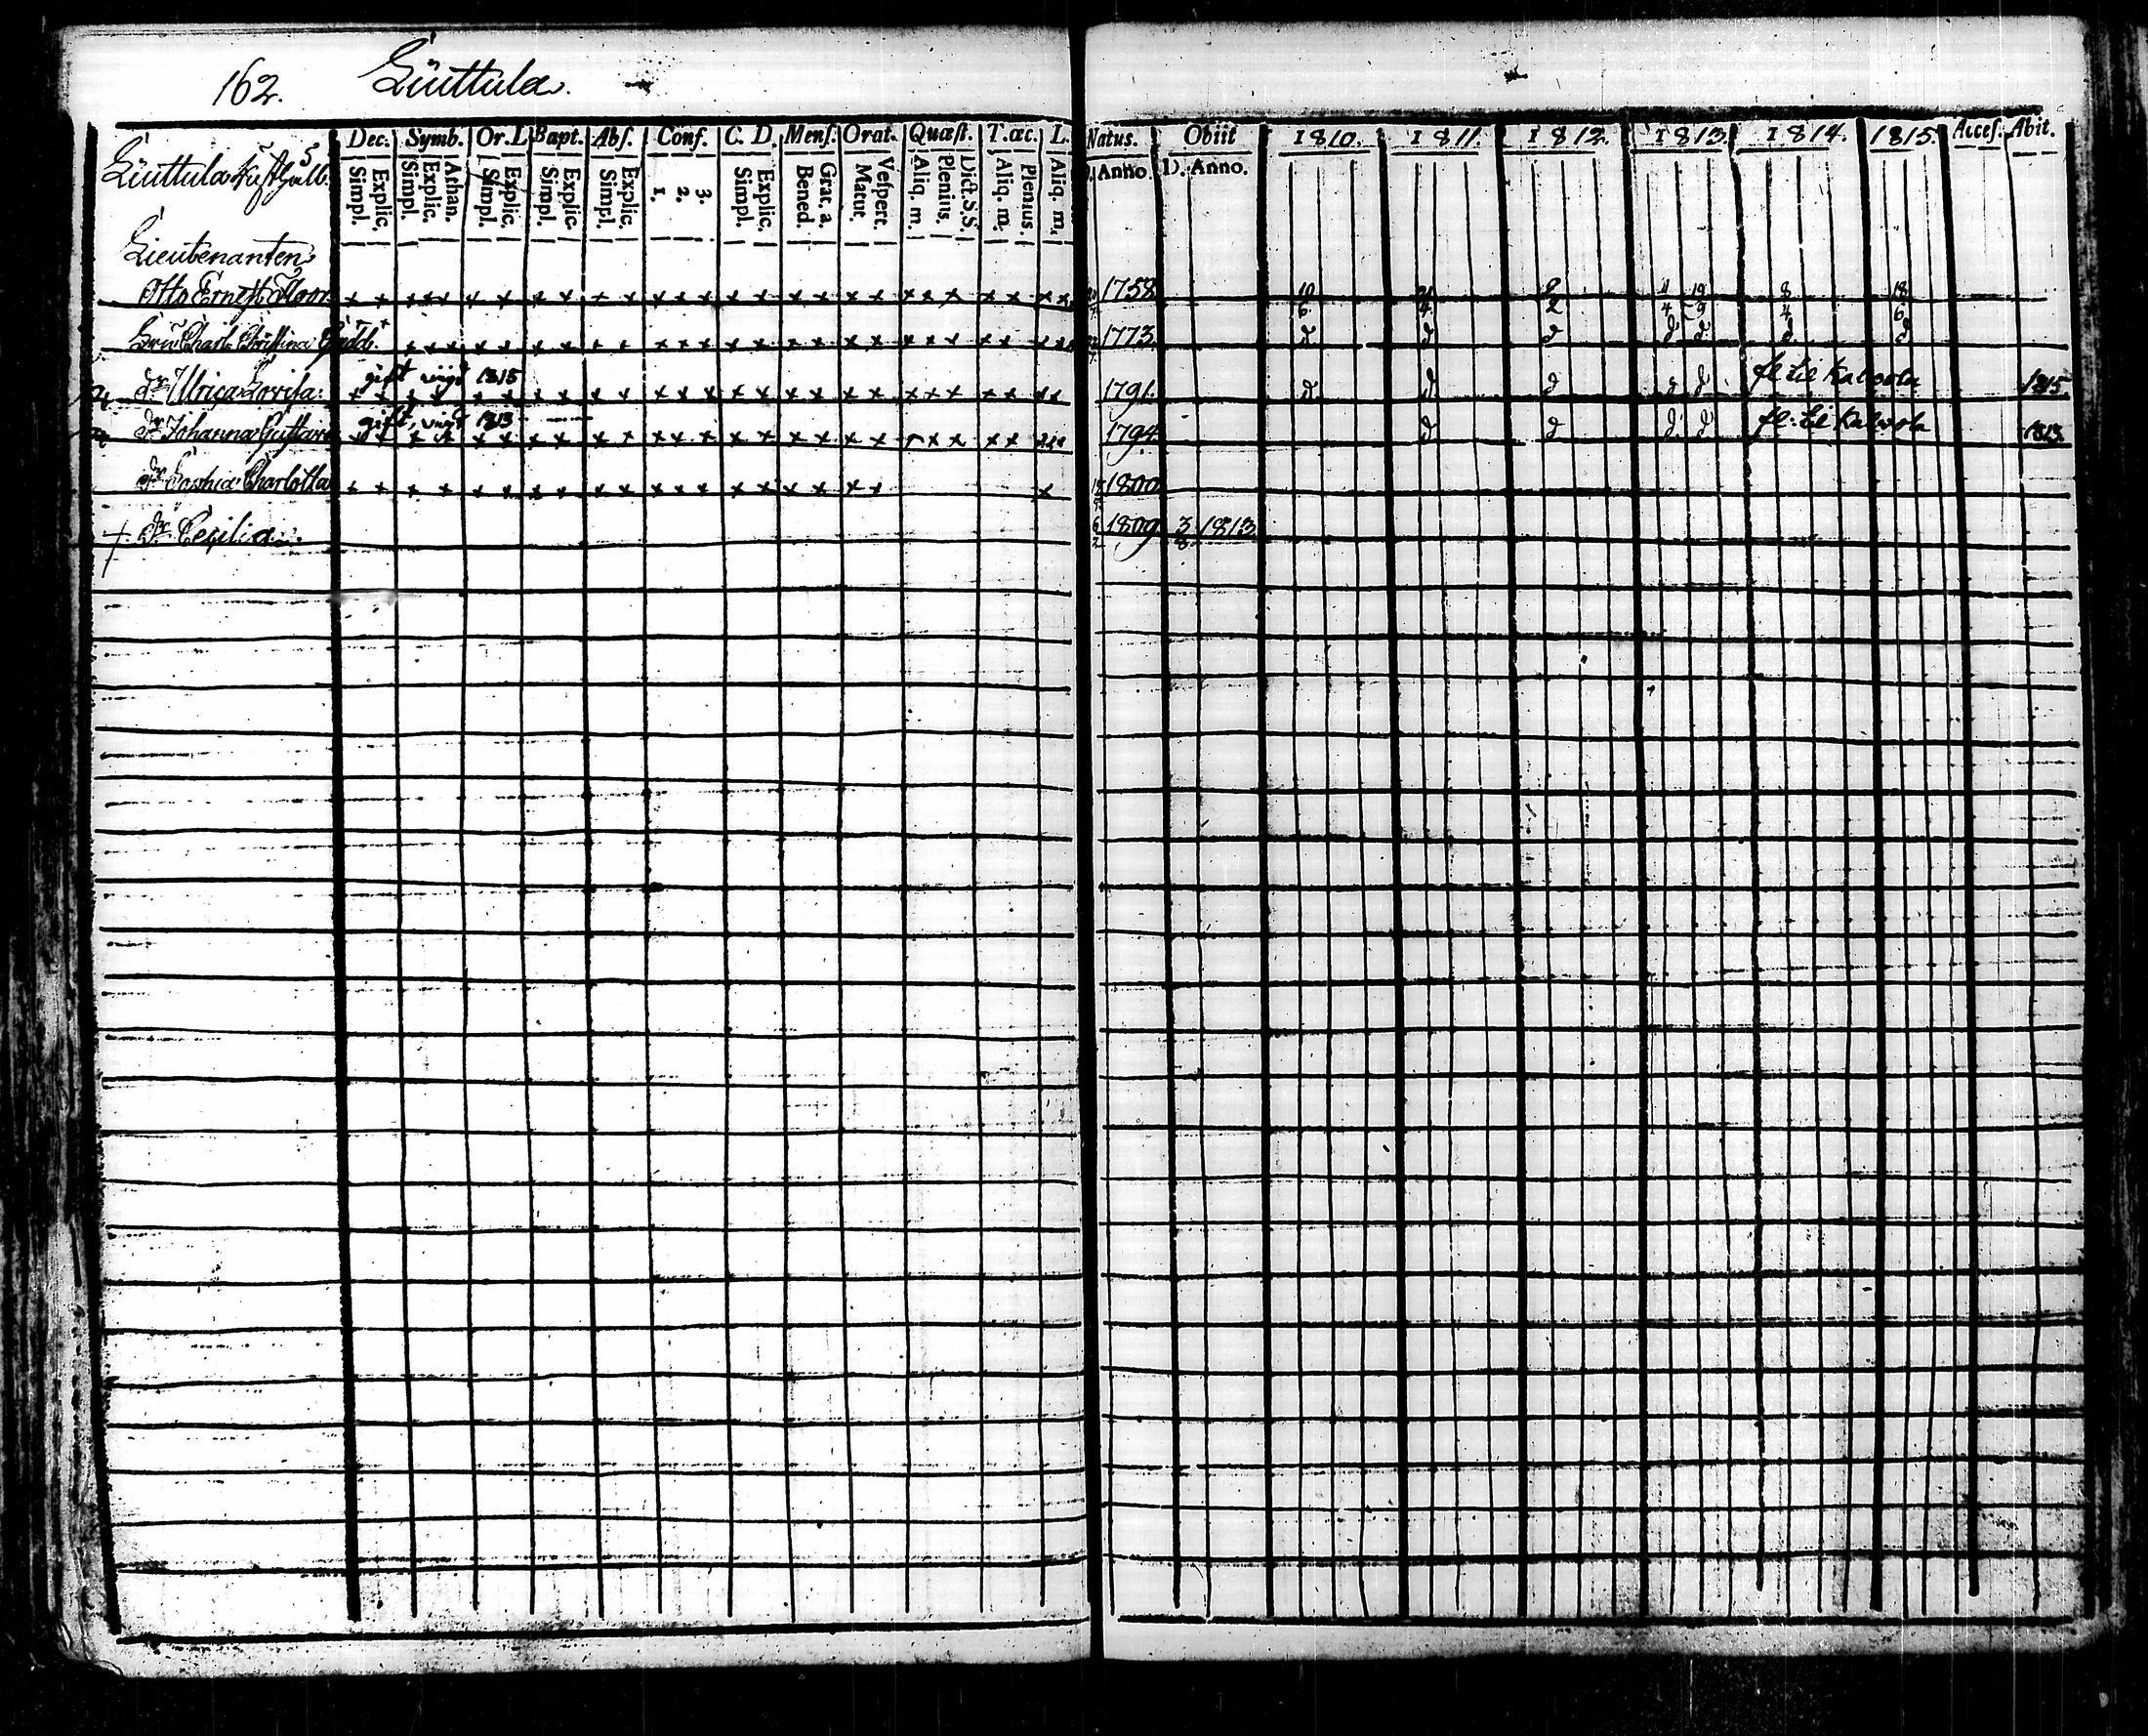 162. Liuttula.
Dec. Symb. Or. L Bapt. Abſ. Conf. C. D. Menſ. Orat. Quæſt. T. œc. L. Natus. Obiit 1810. 1811. 1812. 1813. 1814. 1815. Acceſ. Abit.
Simpl. Explic. Simpl. Explic. Athan. Simpl. Explic. Simpl. Explic. Simpl. Explic. 1. 2. 3. Simpl. Explic. Bened. Grat. a. Matut. Veſpert. Aliq. m. Plenius. Dict. S. S. Aliq. m. Plenius. Aliq. m. Anno D. Anno.
Liuttula
Lieutenanten
Otto Ernest x x x x x x x x x x x x x x x x x x x x x x x x x x x x 1758 10/6 4 2 4 8/4 18/6
Charl. Christina x x x x x x x x x x x x x x x x x x x x x x x 1773 d d d d d d d
gift 1815
Dr. Ulrica Lovisa x x x x x x x x x x x x x x x x x x x x x x x x x 1791. d d d d fl til Kalvola 1815.
gift, 1813
Dr. Johanna x x x x x x x x x x x x x x x x x x x x x x 1794 d d d d fl. til Kalvola 1813
Dr. Charlotta x x x x x x x x x x x x x x x x x x x x 1800
+ Dr. Cecilia. 6/2 1809 3/8 1813